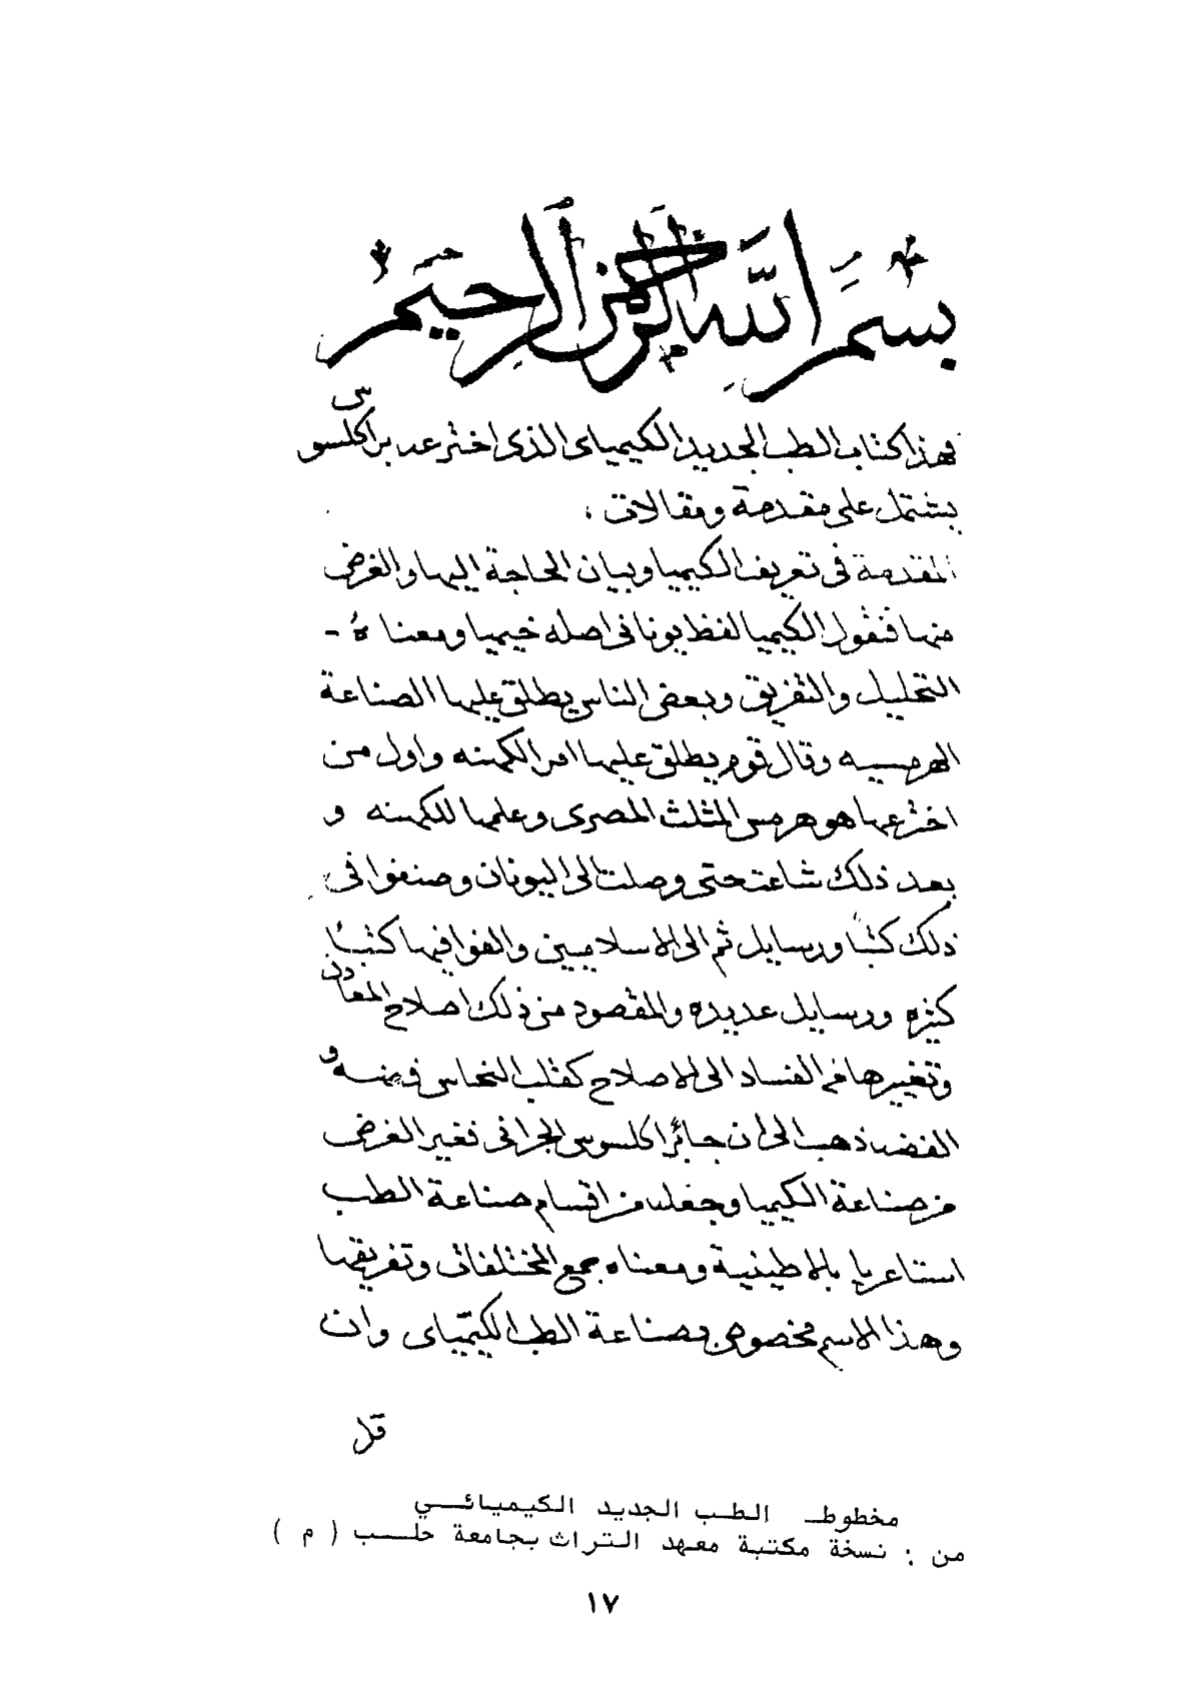 بسم الله الرحمن الرحيم
فهذا كتاب الطب الجديد الكيمياى الذى اخترعه براكلسوس
يشتمل على مقدمة ومقالات ،
المقدمة فى تعريف الكيميا وبيان الحاجة اليها والغرض
منها فنقول الكيميا لفظ يونانى اصله خيميا ومعناه -
التحليل والتفريق وبعض الناس يطلق عليها الصناعة
الهرمسيه وقال قوم يطلق عليها امر الكهنه واول من
اخترعها هو هرمس المثلث المصرى وعلمها للكهنه و
بعد ذلك شاعت حتى وصلت الى اليونان وصنفوا فى
ذلك كتبًا ورسايل ثم الى الاسلاميين والفوا فيها كتبًا
كثيره ورسايل عديده والمقصود من ذلك اصلاح المعادن
وتغييرها من الفساد الى الاصلاح كقلب النحاس
الفضه ذهب الى ان جا براكلسوس الجرمانى فغير الغرض
من صناعة الكيميا وجعله من اقسام صناعة الطب
اسباغريا بالاطينية ومعناه جمع المختلفات وتفريقها
وهذا الاسم مخصوص بصناعة الطب الكيمياى وان
مخطوط الطب الجديد الكيميائي
من : نسخة مكتبة معهد التراث بجامعة حلب ( م )
١٧